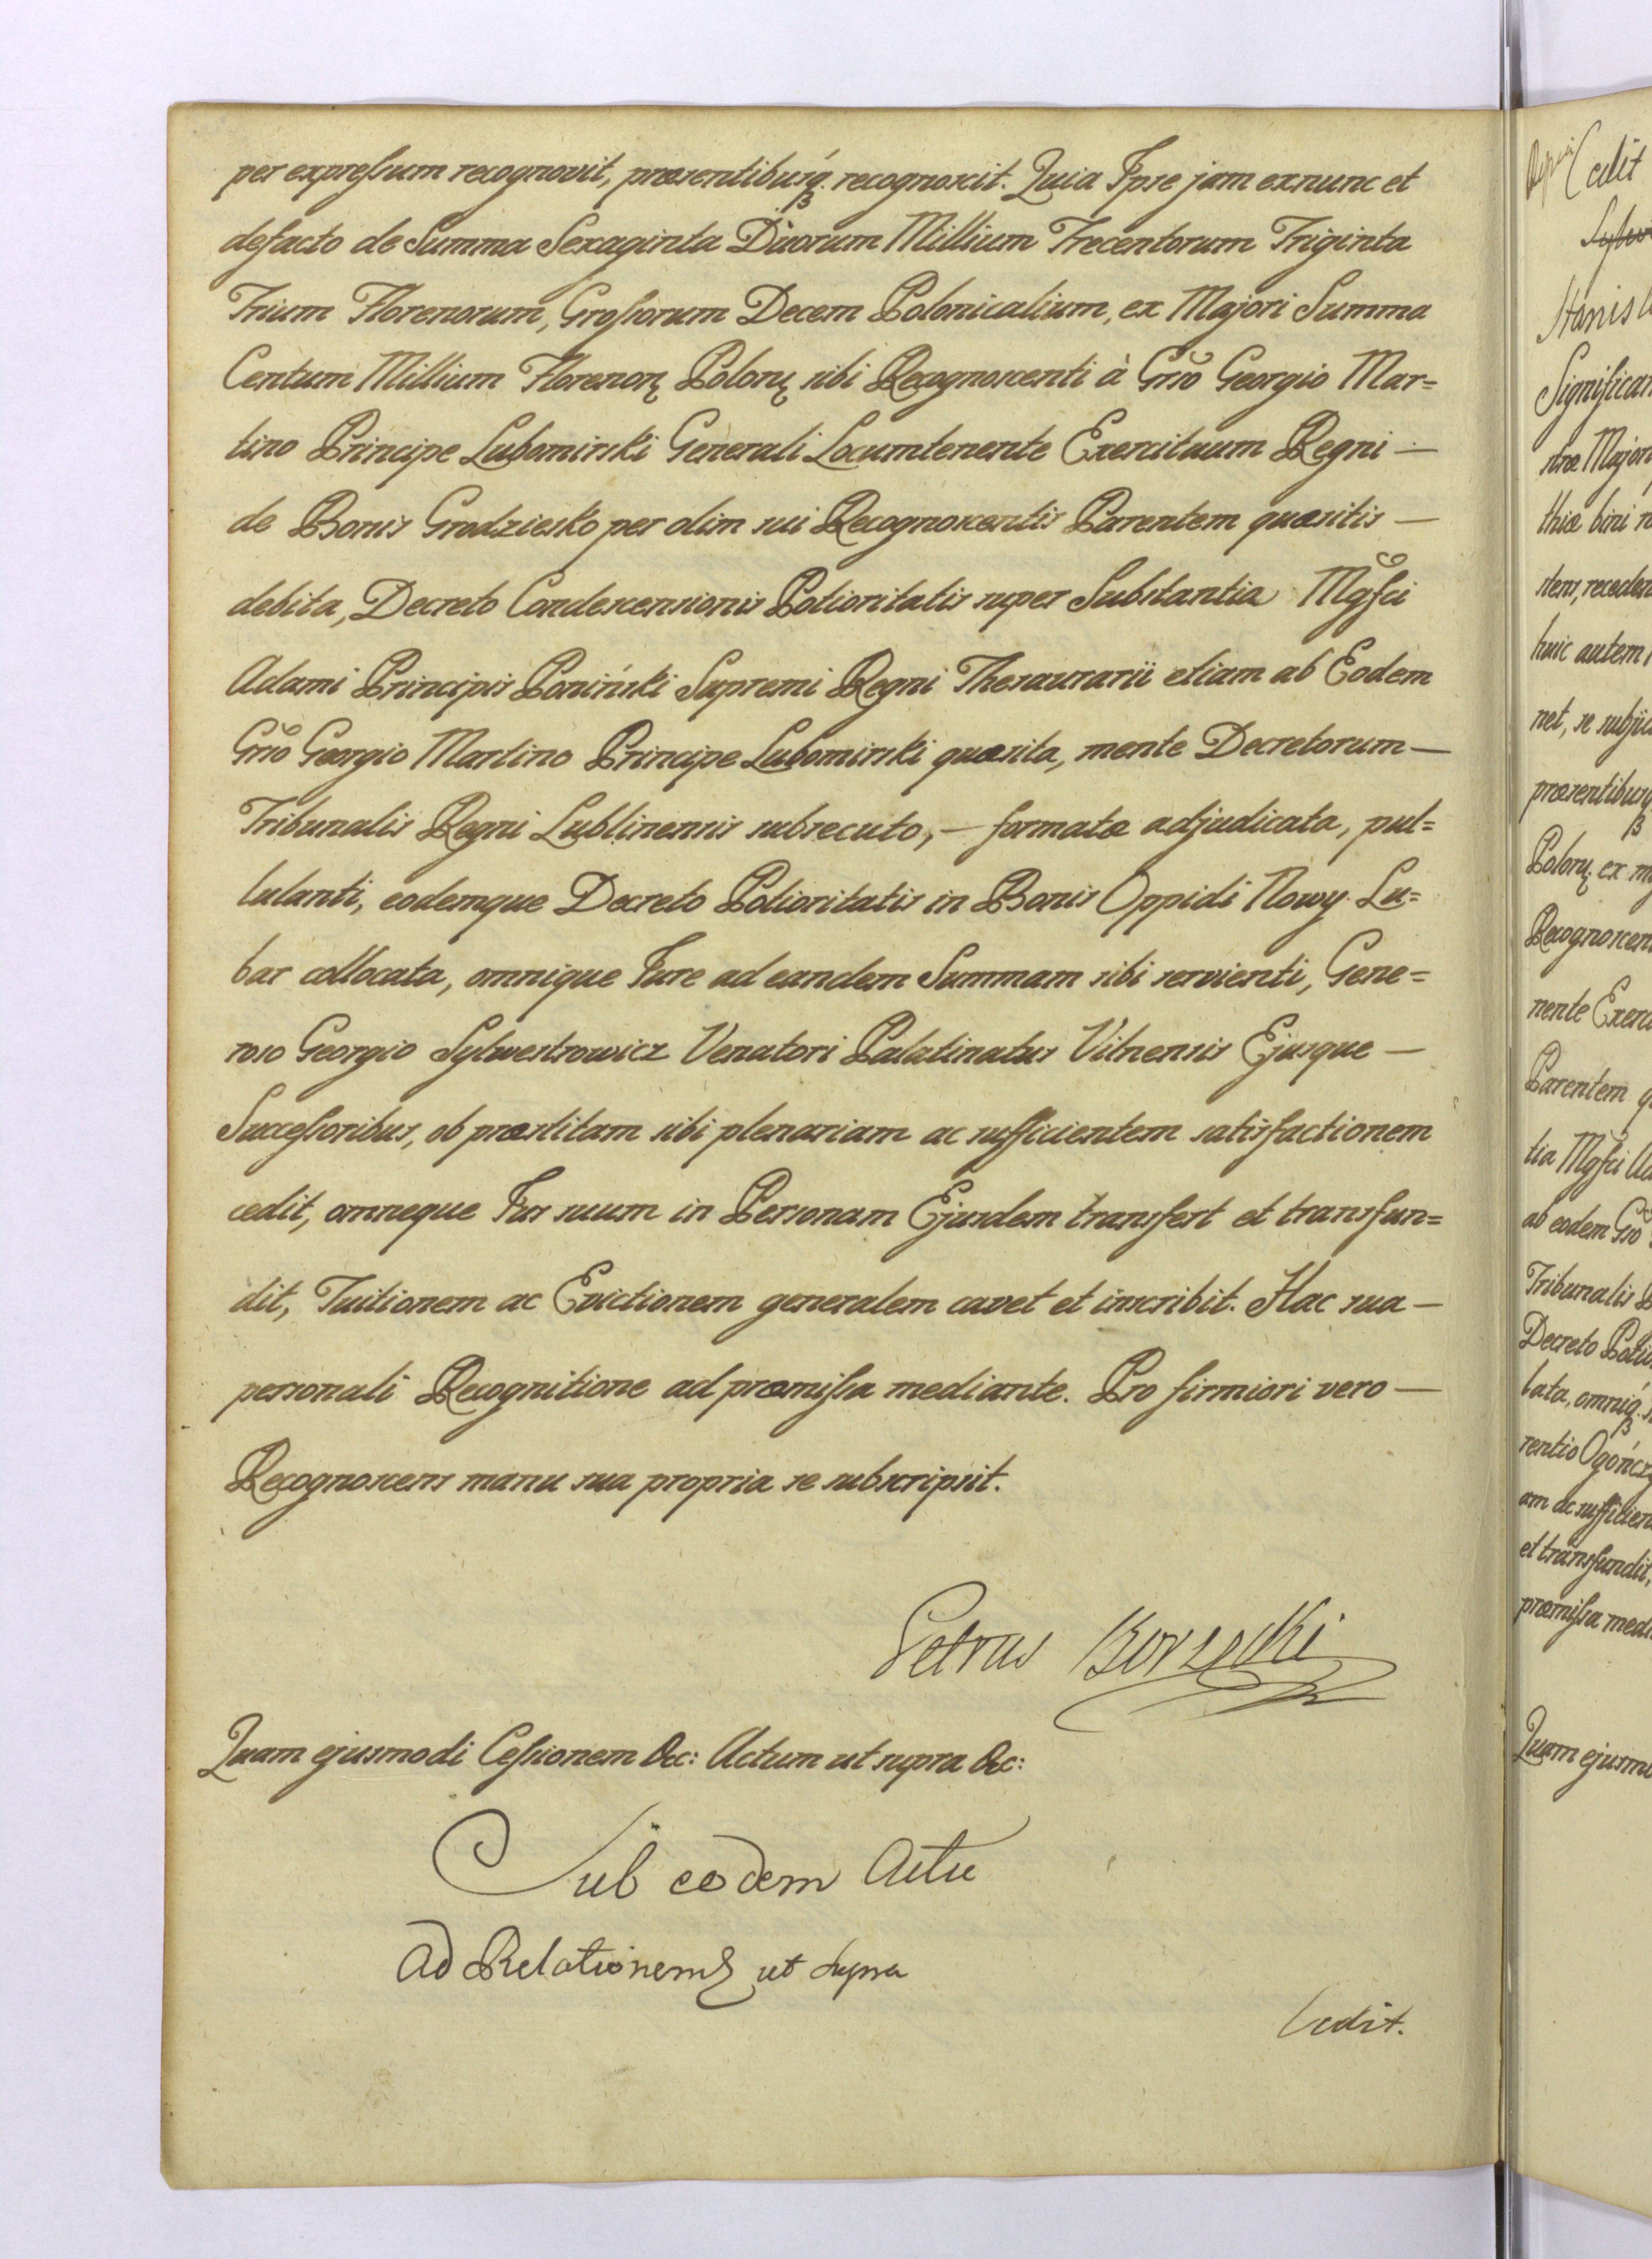 per expreſsum recognovit, præsentibusq́ꝫ recognoscit. Quia Ipse jam exnunc et
defacto de Summa Sexaginta Duorum Millium Trecentorum Triginta
Trium Florenorum, Groſsorum Decem Polonicalium, ex Majori Summa
Centum Millium Florenoꝝ Poloꝝ sibi Recognoscenti à Gr̃so Georgio Mar=
tino Principe Lubomirski Generali Locumtenente Exercituum Regni —
de Bonis Grodziesko per olim sui Recognoscentis Parentem quæsitis —
debita, Decreto Condescensionis Potioritatis super Substantia Mg̃fci
Adami Principis Poniński Supremi Regni Thesaurarii etiam ab Eodem
Gr̃so Georgio Martino Principe Lubomirski quæsita, mente Decretorum —
Tribunalis Regni Lublinensis subsecuto, — formatæ adjudicata, pul=
lulanti, eodemque Decreto Potioritatis in Bonis Oppidi Nowy Lu=
bar collocata, omnique Jure ad eandem Summam sibi servienti, Gene=
roso Georgio Sylwestrowicz Venatori Palatinatus Vilnensis Ejusque —
Succeſsoribus, ob præstitam sibi plenariam ac sufficientem satisfactionem
cedit, omneque Jus suum in Personam Ejusdem transfert et transfun=
dit, Tuitionem ac Evictionem generalem cavet et inscribit. Hac sua —
personali Recognitione ad præmiſsa mediante. Pro firmiori vero —
Recognoscens manu sua propria se subscripsit.
Petrus Borzęcki
Quam ejusmodi Ceſsionem &c: Actum ut supra &c:
Sub eodem Actu
ad Relationem ut supra
Cedit.
Cedit
Stanis
Significan
stræ Majori
thiæ bini
stens, receden
huic autem
net, se subjici
præsentibusq
Poloꝝ. ex m
Recognoscen
nente Exerci
Parentem q
tia Mg̃fci Ad
ab eodem Gr̃so
Tribunalis
Decreto Poti
cata, omniq́ꝫ
rentio Ogończ
am ac sufficien
et transfundit,
præmiſsa medi
Quam ejusmo